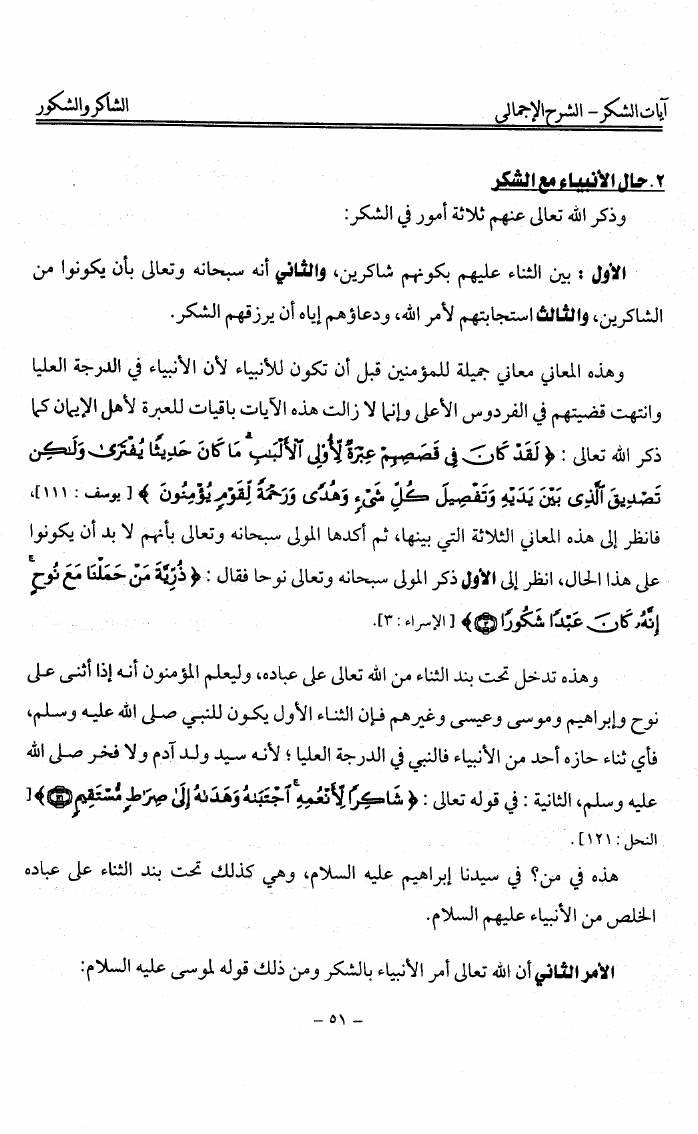 آيات الشكر – الشرح الإجمالي
الشاكر والشكور
٢. حال الأنبياء مع الشكر
وذكر الله تعالى عنهم ثلاثة أمور في الشكر:
الأول : بين الثناء عليهم بكونهم شاكرين، والثاني أنه سبحانه وتعالى بأن يكونوا من
الشاكرين، والثالث استجابتهم لأمر الله، ودعاؤهم إياه أن يرزقهم الشكر.
وهذه المعاني معاني جميلة للمؤمنين قبل أن تكون للأنبياء لأن الأنبياء في الدرجة العليا
وانتهت قضيتهم في الفردوس الأعلى وإنما لا زالت هذه الآيات باقيات للعبرة لأهل الإيمان كما
ذكر الله تعالى : ﴿ لَقَدْ كَانَ فِي قَصَصِهِمْ عِبْرَةٌ لِّأُوْلِي الْأَلْبَابِ ۗ مَا كَانَ حَدِيثًا يُفْتَرَىٰ وَلَٰكِن
تَصْدِيقَ الَّذِي بَيْنَ يَدَيْهِ وَتَفْصِيلَ كُلِّ شَيْءٍ وَهُدًى وَرَحْمَةً لِّقَوْمٍ يُؤْمِنُونَ ﴾ [ يوسف : ١١١]،
فانظر إلى هذه المعاني الثلاثة التي بينها، ثم أكدها المولى سبحانه وتعالى بأنهم لا بد أن يكونوا
على هذا الحال، انظر إلى الأول ذكر المولى سبحانه وتعالى نوحا فقال : ﴿ ذُرِّيَّةَ مَنْ حَمَلْنَا مَعَ نُوحٍ ۚ
إِنَّهُ كَانَ عَبْدًا شَكُورًا ۝٣﴾ [ الإسراء : ٣].
وهذه تدخل تحت بند الثناء من الله تعالى على عباده، وليعلم المؤمنون أنه إذا أثنى على
نوح وإبراهيم وموسى وعيسى وغيرهم فإن الثناء الأول يكون للنبي صلى الله عليه وسلم،
فأي ثناء حازه أحد من الأنبياء فالنبي في الدرجة العليا ؛ لأنه سيد ولد آدم ولا فخر صلى الله
عليه وسلم، الثانية : في قوله تعالى : ﴿ شَاكِرًا لِّأَنْعُمِهِ ۚ اجْتَبَاهُ وَهَدَاهُ إِلَىٰ صِرَاطٍ مُّسْتَقِيمٍ ۝١٢١﴾ [
النحل : ١٢١] .
هذه في من؟ في سيدنا إبراهيم عليه السلام، وهي كذلك تحت بند الثناء على عباده
الخلص من الأنبياء عليهم السلام.
الأمر الثاني أن الله تعالى أمر الأنبياء بالشكر ومن ذلك قوله لموسى عليه السلام:
– ٥١ –